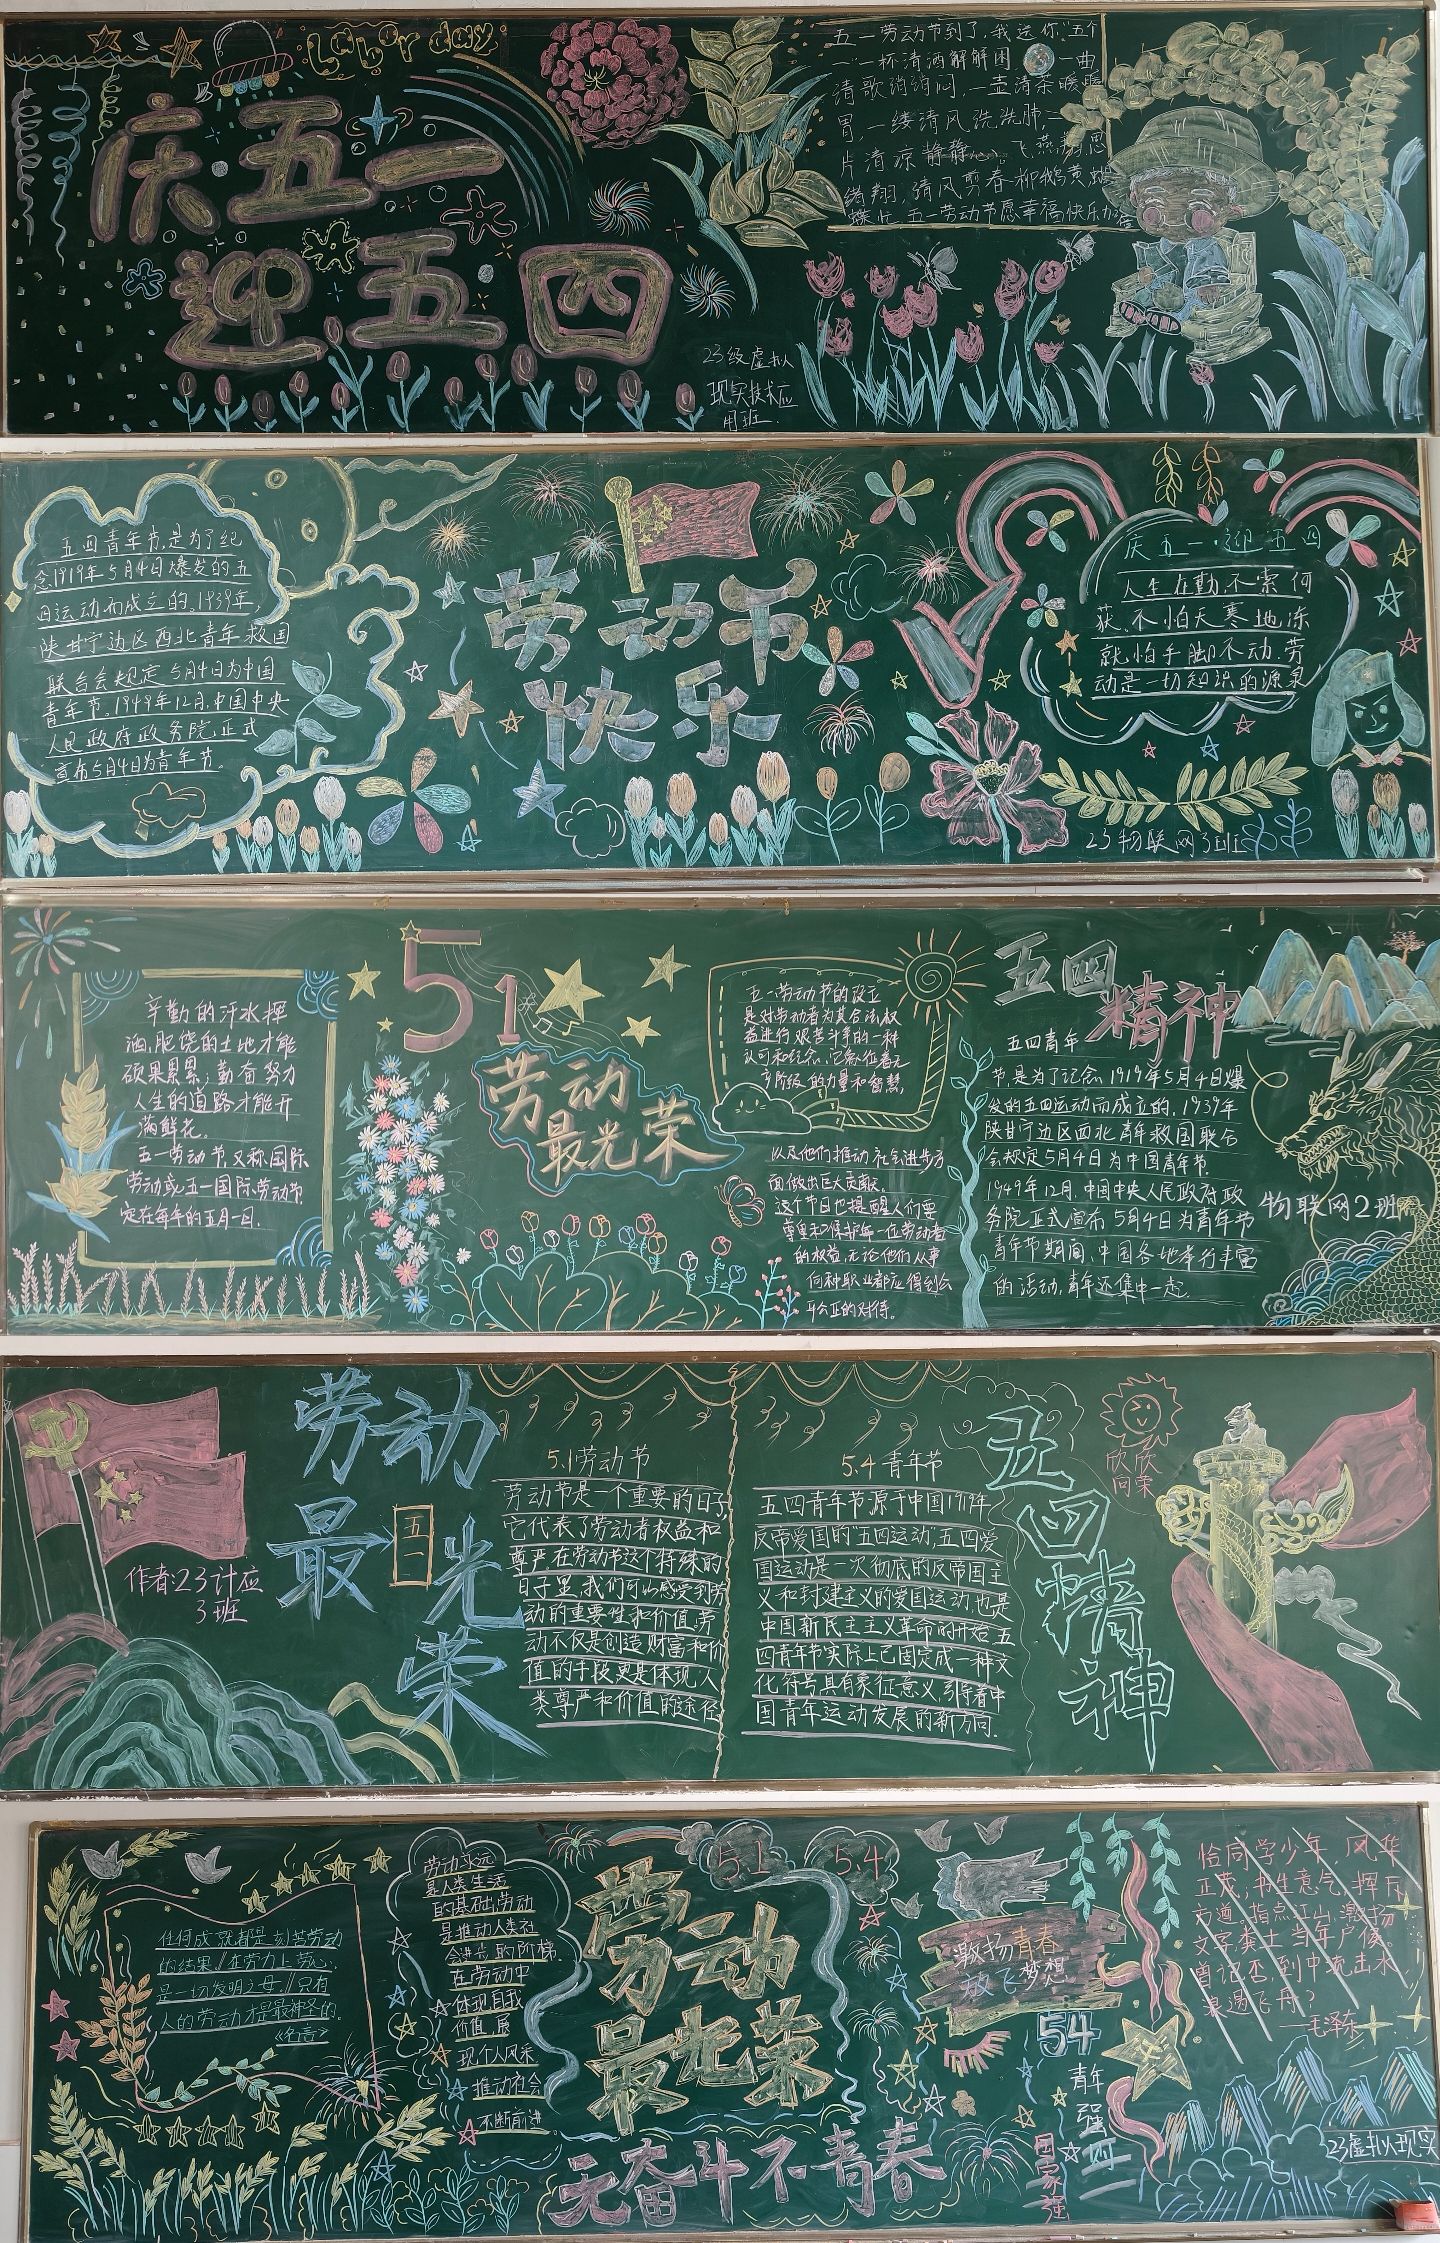 Labor day
庆五一
迎五四
五一劳动节到了,我送你“五个
一”一杯清酒解解困 一曲
清歌消消闷,一壶清茶暖暖
胃,一缕清风洗洗肺一
片清凉静静心。飞燕翔,思
绪翔,清风剪春柳鹅黄,蝴
蝶忙,五一劳动节愿幸福快乐
23级虚拟
现实技术应
用班
五四青年节,是为了纪
念1919年5月4日爆发的五
四运动而成立的。1939年,
陕甘宁边区西北青年救国
联合会规定5月4日为中国
青年节。1949年12月,中国中央
人民政府政务院正式
宣布5月4日为青年节。
劳动节
快乐
庆五一·迎五四
人生在勤,不索何
获,不怕天寒地冻
就怕手脚不动,劳
动是一切知识的源泉
23物联网3班
辛勤的汗水挥
洒,肥饶的土地才能
硕果累累;勤奋努力
人生的道路才能开
满鲜花。
五一劳动节又称国际
劳动或五一国际劳动节
定在每年的五月一日.
51
劳动
最光荣
五一劳动节的设立
是对劳动者为其合法权
益进行艰苦斗争的一种
认可和纪念.记标位着无
产阶级的力量和智慧,
以及他们推动社会进步方
面做出巨大贡献。
这个节日也提醒人们要
尊重和保护每一位劳动者
的权益,无论他们从事
何种职业都应得到公
平公正的对待。
五四
精神
五四青年
节,是为了记念1919年5月4日爆
发的五四运动而成立的,1939年
陕甘宁边区西北青年救国联合
会规定5月4日为中国青年节.
1949年12月,中国中央人民政府政
务院正式宣布5月4日为青年节
青年节期间,中国各地举行丰富
的活动,青年还集中一起
物联网2班
劳动
最
光
荣
五一
作者:23计应
3班
5.1劳动节
劳动节是一个重要的日子,
它代表了劳动者权益和
尊严,在劳动节这个特殊的
日子里,我们可以感受到劳
动的重要性和价值。劳
动不仅是创造财富和价
值的手段更是体现人
类尊严和价值的途径
5.4青年节
五四青年节源于中国1919年
反帝爱国的“五四运动”,五四爱
国运动是一次彻底的反帝国主
义和封建主义的爱国运动,也是
中国新民主主义革命的开始,五
四青年节实际上已固定成一种文
化符号具有象征意义,引导着中
国青年运动发展的新方向.
五四精神
欣欣
向荣
任何成就都是刻苦劳动
的结果∥在劳力上劳心,
是一切发明之母∥只有
人的劳动才是最神圣的.
《名言》
劳动永远
是人类生活
的基础,劳动
是推动人类社
会进步的阶梯.
在劳动中
体现自我
价值,展
现个人风采
推动社会
不断前进
5.1
5.4
劳动
最光荣
无奋斗不青春
激扬青春
放飞梦想
54
青年
强则
国家强
恰同学少年,风华
正茂;书生意气,挥斥
方遒。指点江山,激扬
文字,粪土当年户侯。
曾记否,到中流击水,
浪遏飞舟?
——毛泽东
23虚拟现实